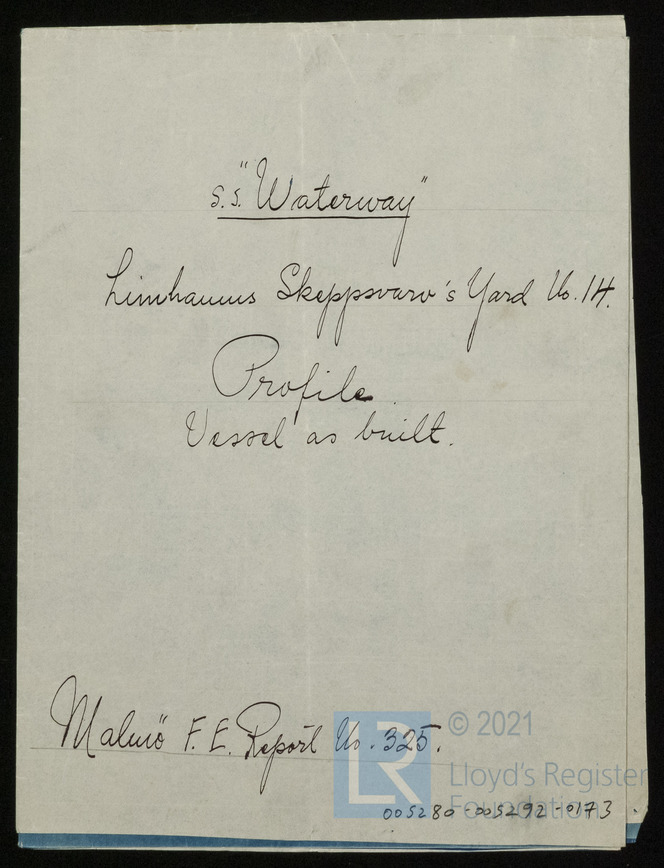 s.s. "Waterway"
Limhamns Skeppsvarv's Yard No. 14.
Profile.
Vessel as built.
Malmö F. E. Report No. 325.
LR
© 2021
Lloyd's Register
Foundation
005280-005292-0173